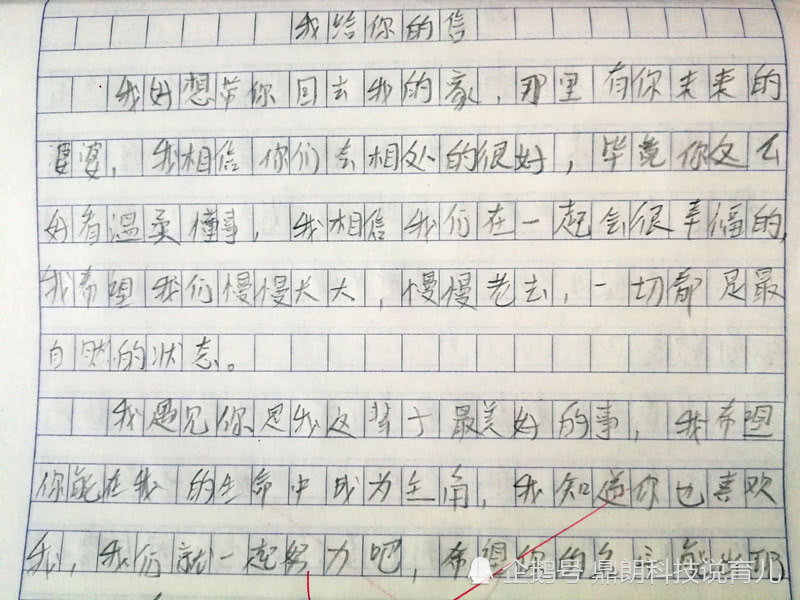 我给你的信
我好想带你回去我的家，那里有你未来的
婆婆，我相信你们去相处的很好，毕竟你这么
好看温柔懂事，我相信我们在一起会很幸福的，
我希望我们慢慢长大，慢慢老去，一切都是最
自然的状态。
我遇见你是我这辈子最美好的事，我希望
你能在我的生命中成为主角，我知道你也喜欢
我，我们就一起努力吧，希望你的
企鹅号 鼎朗科技说育儿